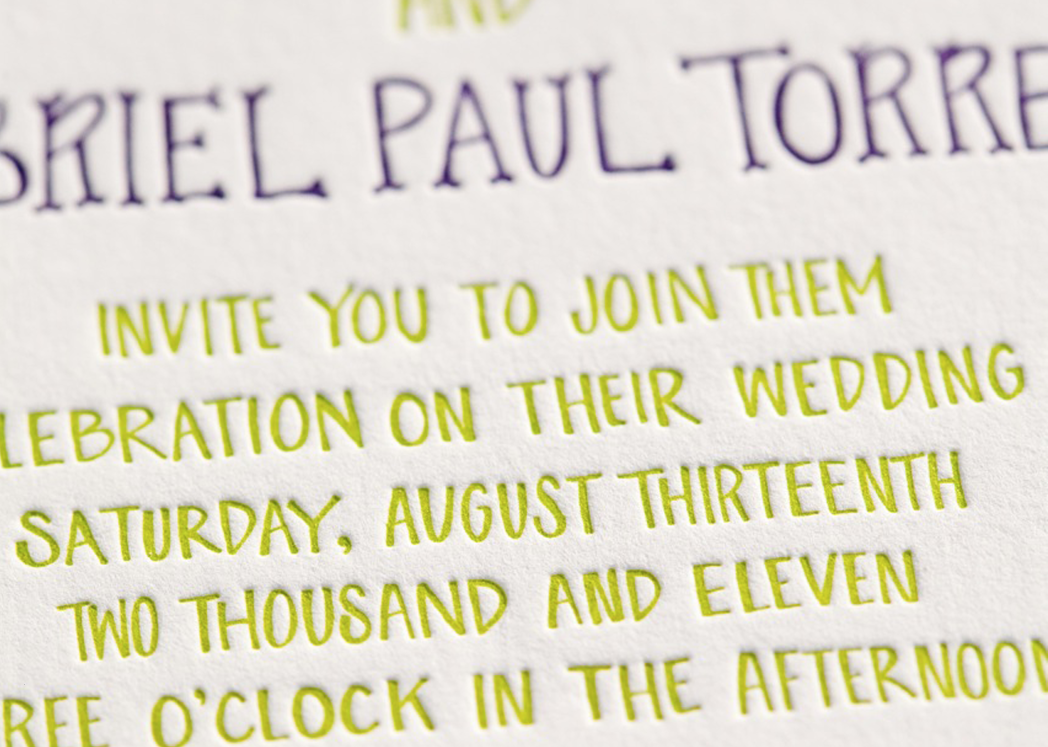 AND
BRIEL PAUL TORRE
INVITE YOU TO JOIN THEM
LEBRATION ON THEIR WEDDING
SATURDAY, AUGUST THIRTEENTH
TWO THOUSAND AND ELEVEN
REE O'CLOCK IN THE AFTERNOON